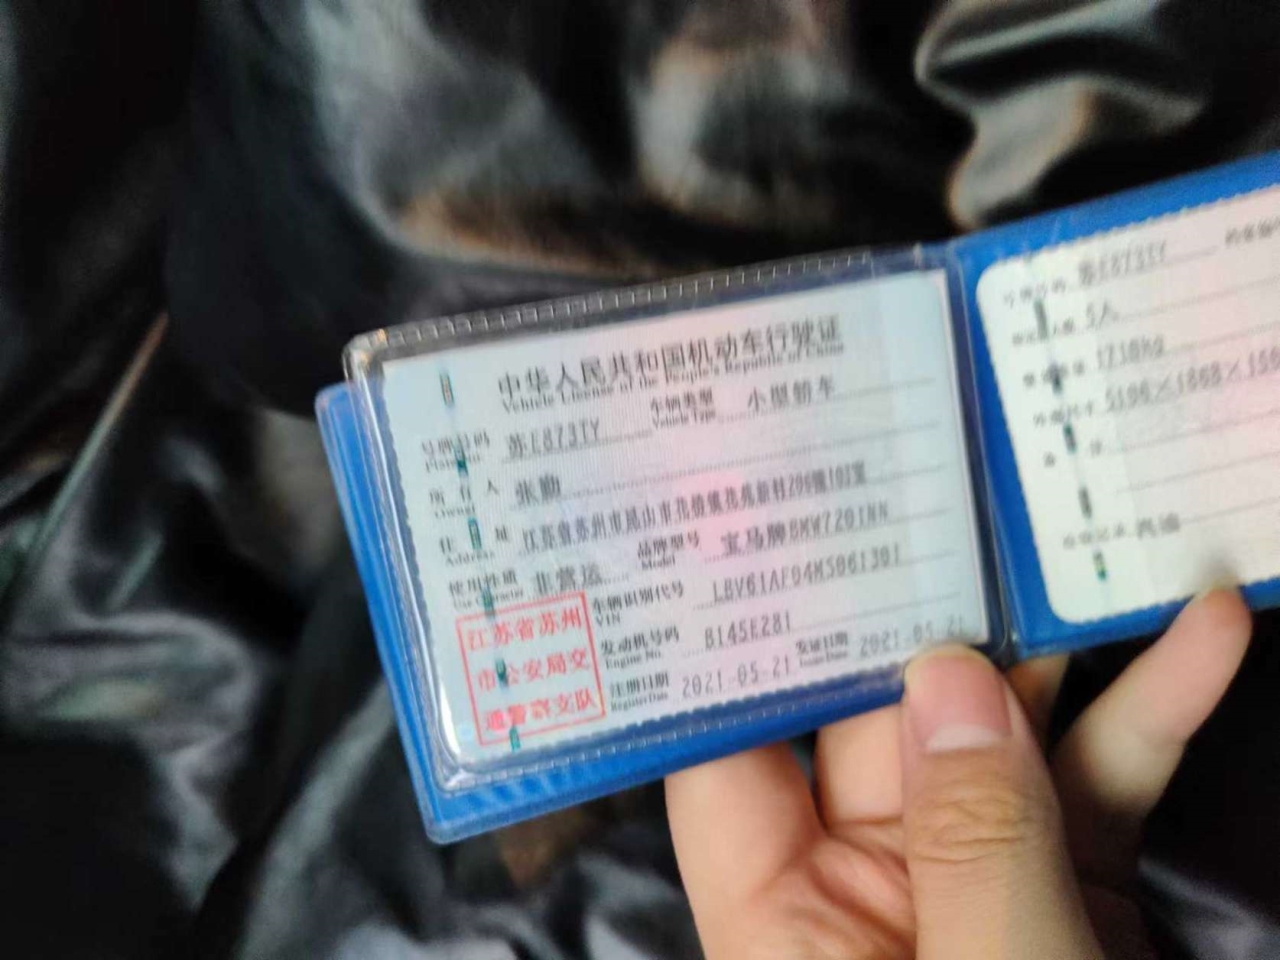 中华人民共和国机动车行驶证
Vehicle License of the People's Republic of China
号牌号码 苏E873TY 车辆类型 小型轿车
Vehicle Type
所有人 张勤
Owner
住址 江苏省苏州市昆山市花桥镇花苑新村206幢101室
Address
使用性质 非营运 品牌型号 宝马牌BMW7201NN
Use Character Model
车辆识别代号 LBV61AF04MS061301
VIN
发动机号码 B145E281
Engine No.
注册日期 2021-05-21 发证日期 2021-05-21
Register Date Issue Date
江苏省苏州
市公安局交
通警察支队
苏E873TY
5人
1710kg
汽油